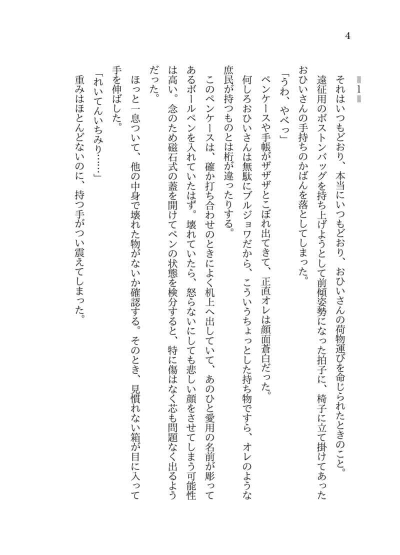 4
=1=
それはいつもどおり、本当にいつもどおり、おひいさんの荷物運びを命じられたときのこと。
遠征用のボストンバッグを持ち上げようとして前傾姿勢になった拍子に、椅子に立て掛けてあった
おひいさんの手持ちのかばんを落としてしまった。
「うわ、やべっ」
ペンケースや手帳がザザザとこぼれ出てきて、正直オレは顔面蒼白だった。
何しろおひいさんは無駄にブルジョワだから、こういうちょっとした持ち物ですら、オレのような
庶民が持つものとは桁が違ったりする。
このペンケースは、確か打ち合わせのときによく机上へ出していて、あのひと愛用の名前が彫って
あるボールペンを入れていたはず。壊れていたら、怒らないにしても悲しい顔をさせてしまう可能性
は高い。念のため磁石式の蓋を開けてペンの状態を検分すると、特に傷はなく芯も問題なく出るよう
だった。
ほっと一息ついて、他の中身で壊れた物がないか確認する。そのとき、見慣れない箱が目に入って
手を伸ばした。
「れいてんいちみり……」
重みはほとんどないのに、持つ手がつい震えてしまった。